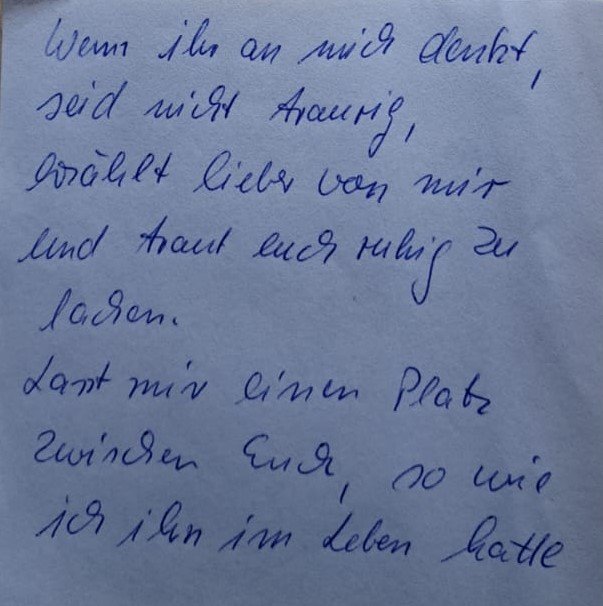 Wenn ihr an mich denkt,
seid nicht traurig,
erzählt lieber von mir
und traut euch ruhig zu
lachen.
Lasst mir einen Platz
zwischen Euch, so wie
ich ihn im Leben hatte